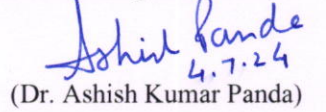 Ashish Panda
4.7.24
(Dr. Ashish Kumar Panda)